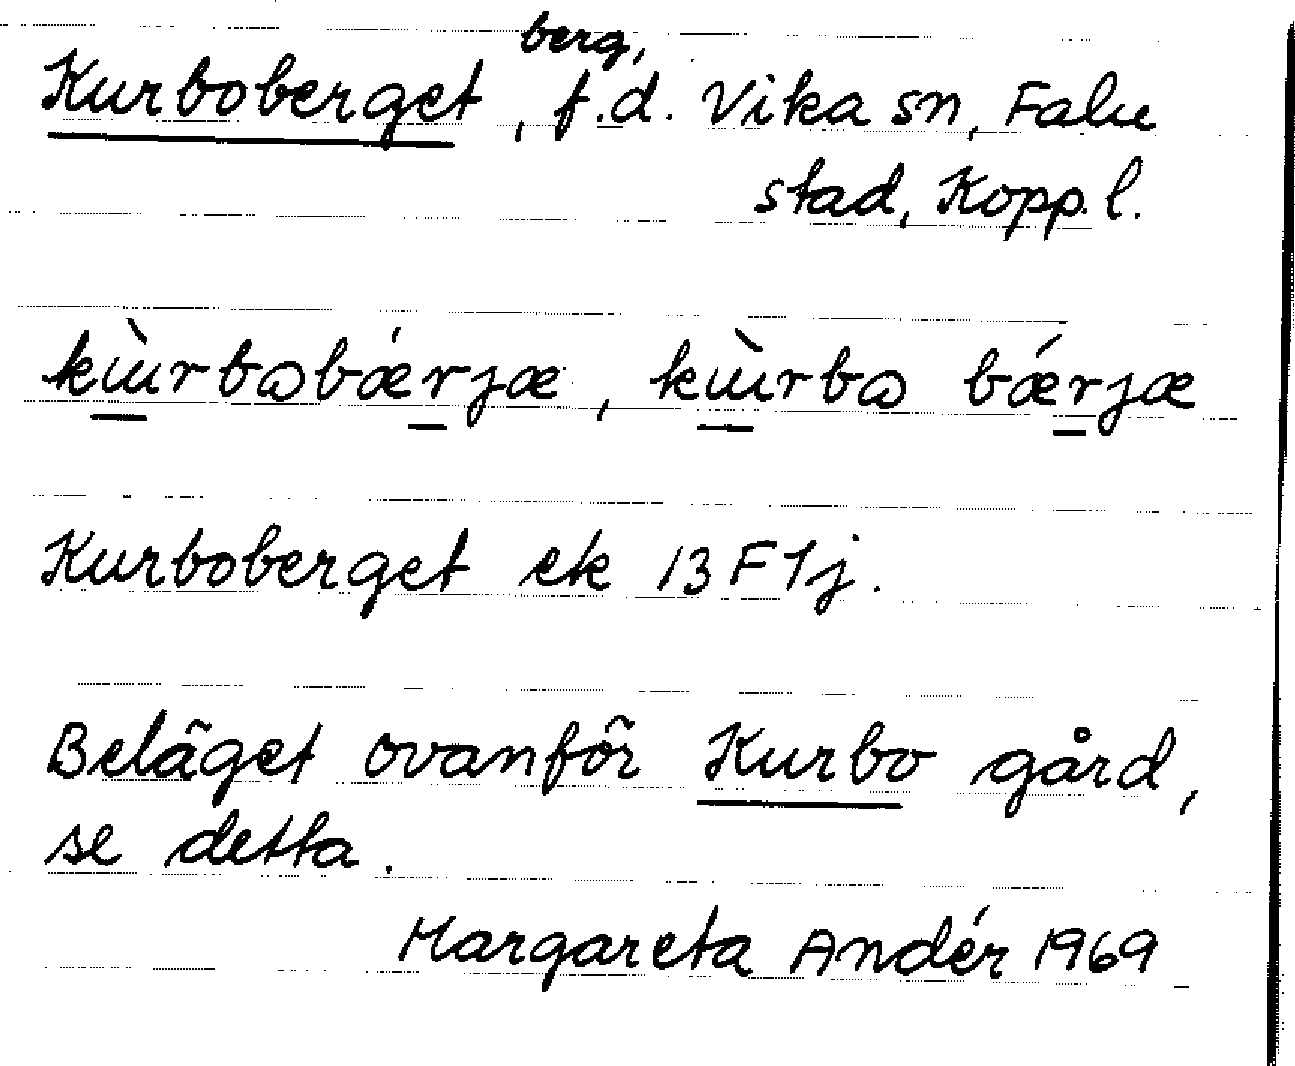 Kurboberget, berg, f.d. Vika sn, Falu
stad, Kopp. l.
kɯ̀rbɷbǽrjæ, kɯ̀rbɷ bǽrjæ
Kurboberget ek 13 F 1j.
Beläget ovanför Kurbo gård,
se detta.
Margareta Andér 1969